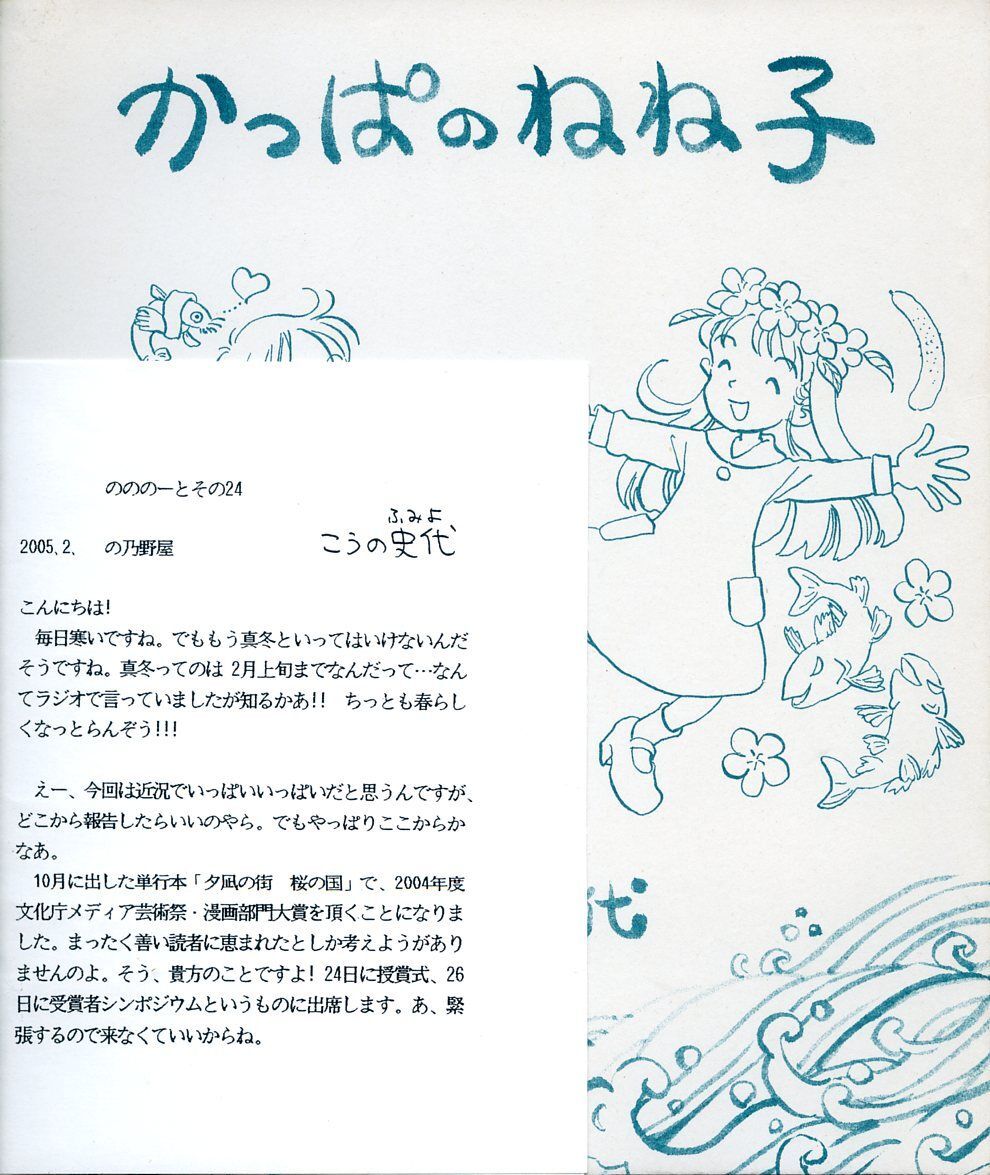 かっぱのねね子
のののーとその24
ふみよ
2005.2.　の乃野屋　こうの史代
こんにちは!
　毎日寒いですね。でももう真冬といってはいけないんだ
そうですね。真冬ってのは 2月上旬までなんだって…なん
てラジオで言っていましたが知るかあ!!　ちっとも春らし
くなっとらんぞう!!!
　えー、今回は近況でいっぱいいっぱいだと思うんですが、
どこから報告したらいいのやら。でもやっぱりここからか
なあ。
　10月に出した単行本「夕凪の街　桜の国」で、2004年度
文化庁メディア芸術祭・漫画部門大賞を頂くことになりま
した。まったく善い読者に恵まれたとしか考えようがあり
ませんのよ。そう、貴方のことですよ! 24日に授賞式、26
日に受賞者シンポジウムというものに出席します。あ、緊
張するので来なくていいからね。
代